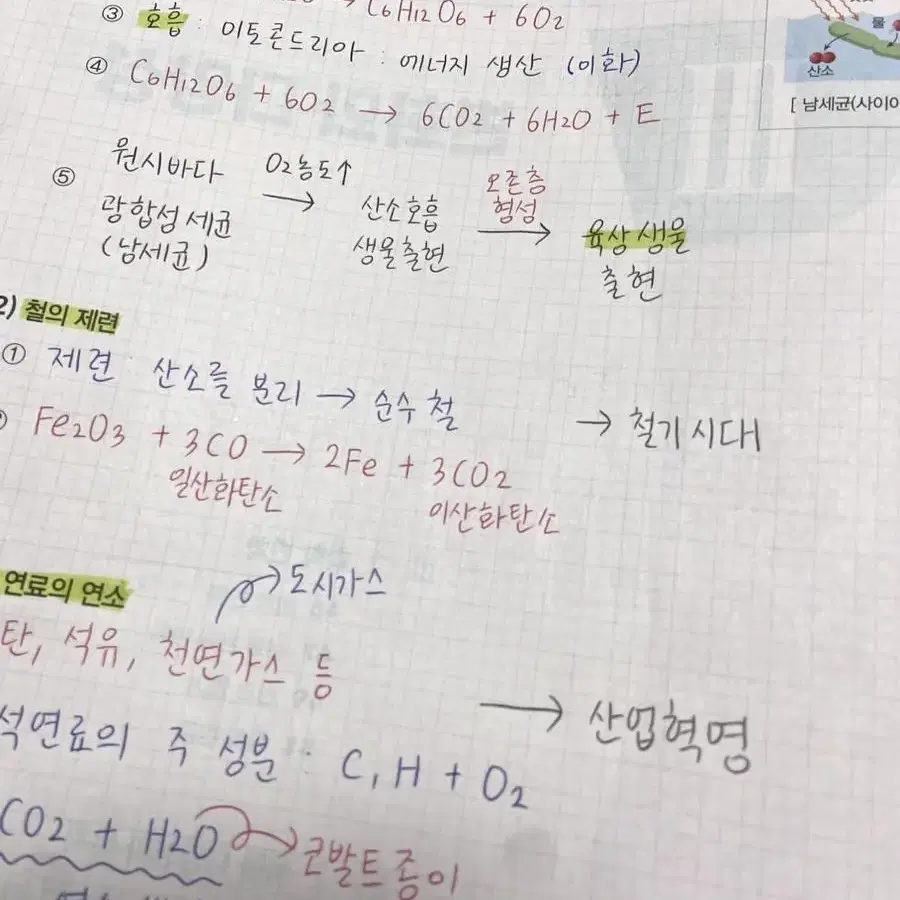 → C6H12O6 + 6O2
③ 호흡 : 미토콘드리아 : 에너지 생산 (이화)
④ C6H12O6 + 6O2 → 6CO2 + 6H2O + E
물
산소
[ 남세균(사이아
⑤ 원시바다 광합성 세균 (남세균) O2농도↑ → 산소호흡 생물출현 오존층 형성 → 육상 생물 출현
2) 철의 제련
① 제련 : 산소를 분리 → 순수 철 → 철기시대
Fe2O3 + 3CO → 2Fe + 3CO2
일산화탄소 이산화탄소
연료의 연소
→ 도시가스
탄, 석유, 천연가스 등
→ 산업혁명
석연료의 주 성분 : C, H + O2
CO2 + H2O → 코발트종이